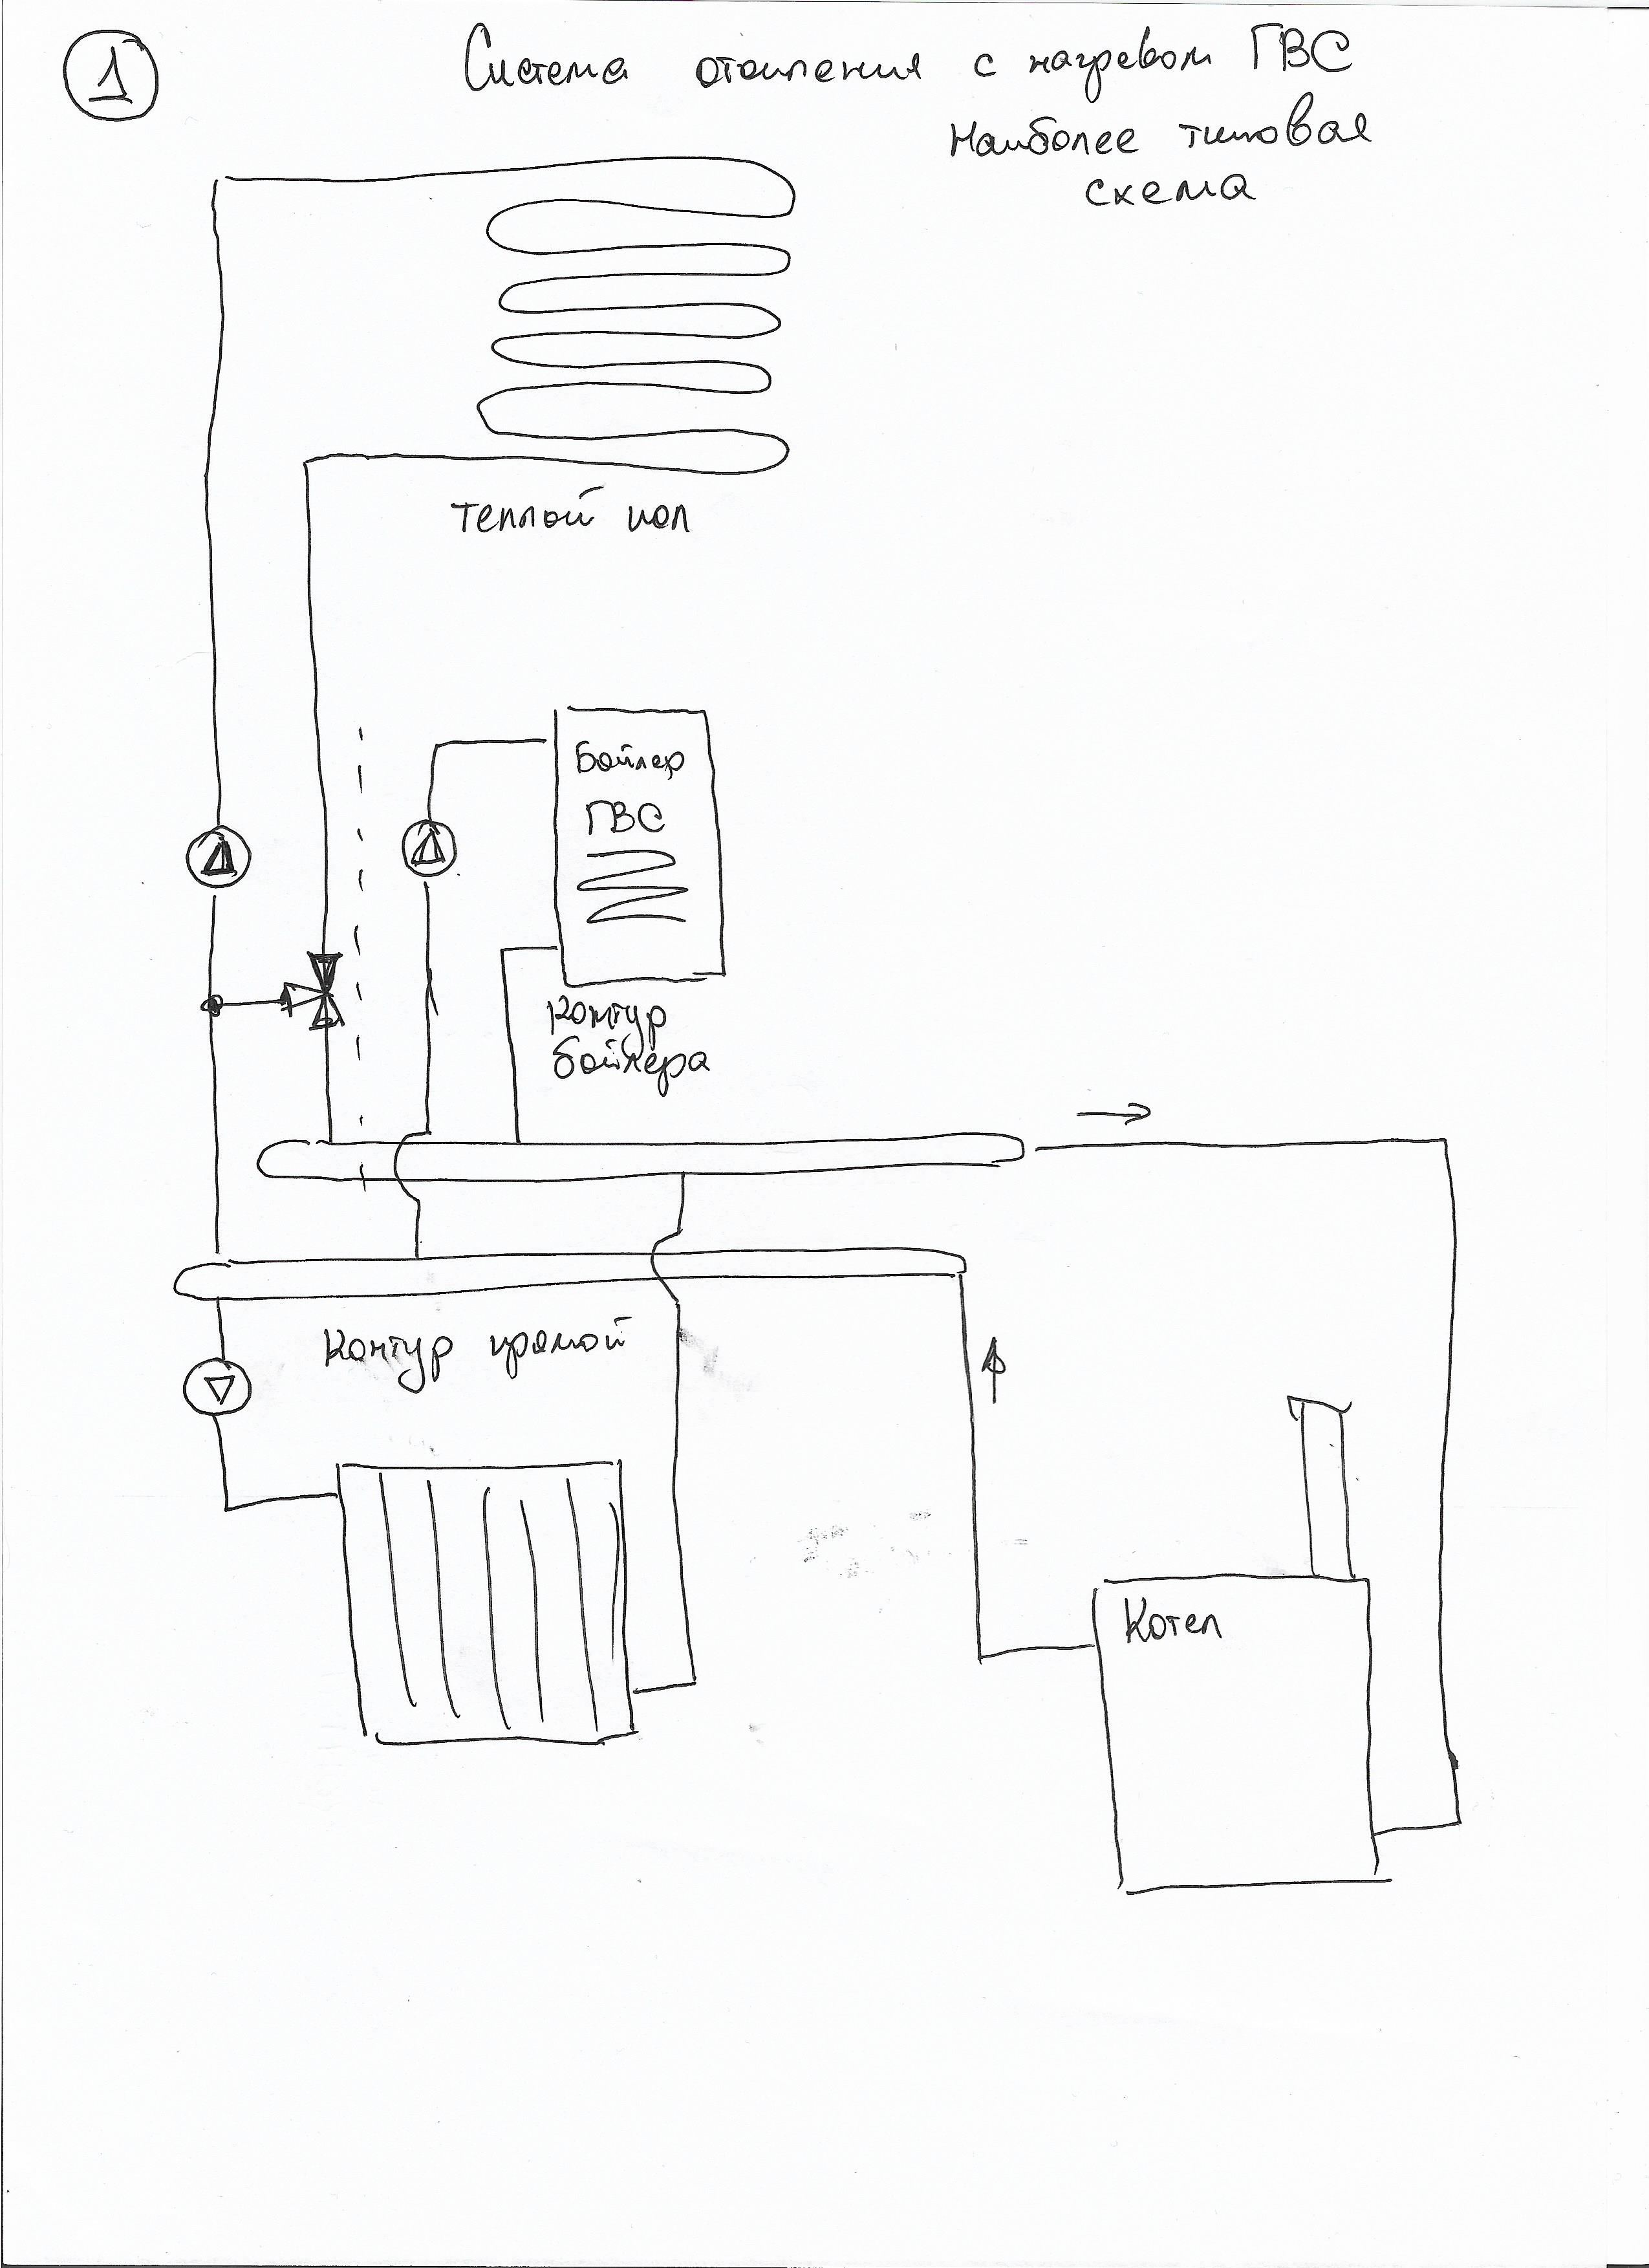 1
Система отопления с нагревом ГВС
Наиболее типовая
схема
теплой пол
Бойлер
ГВС
Контур
бойлера
Контур прямой
Котел